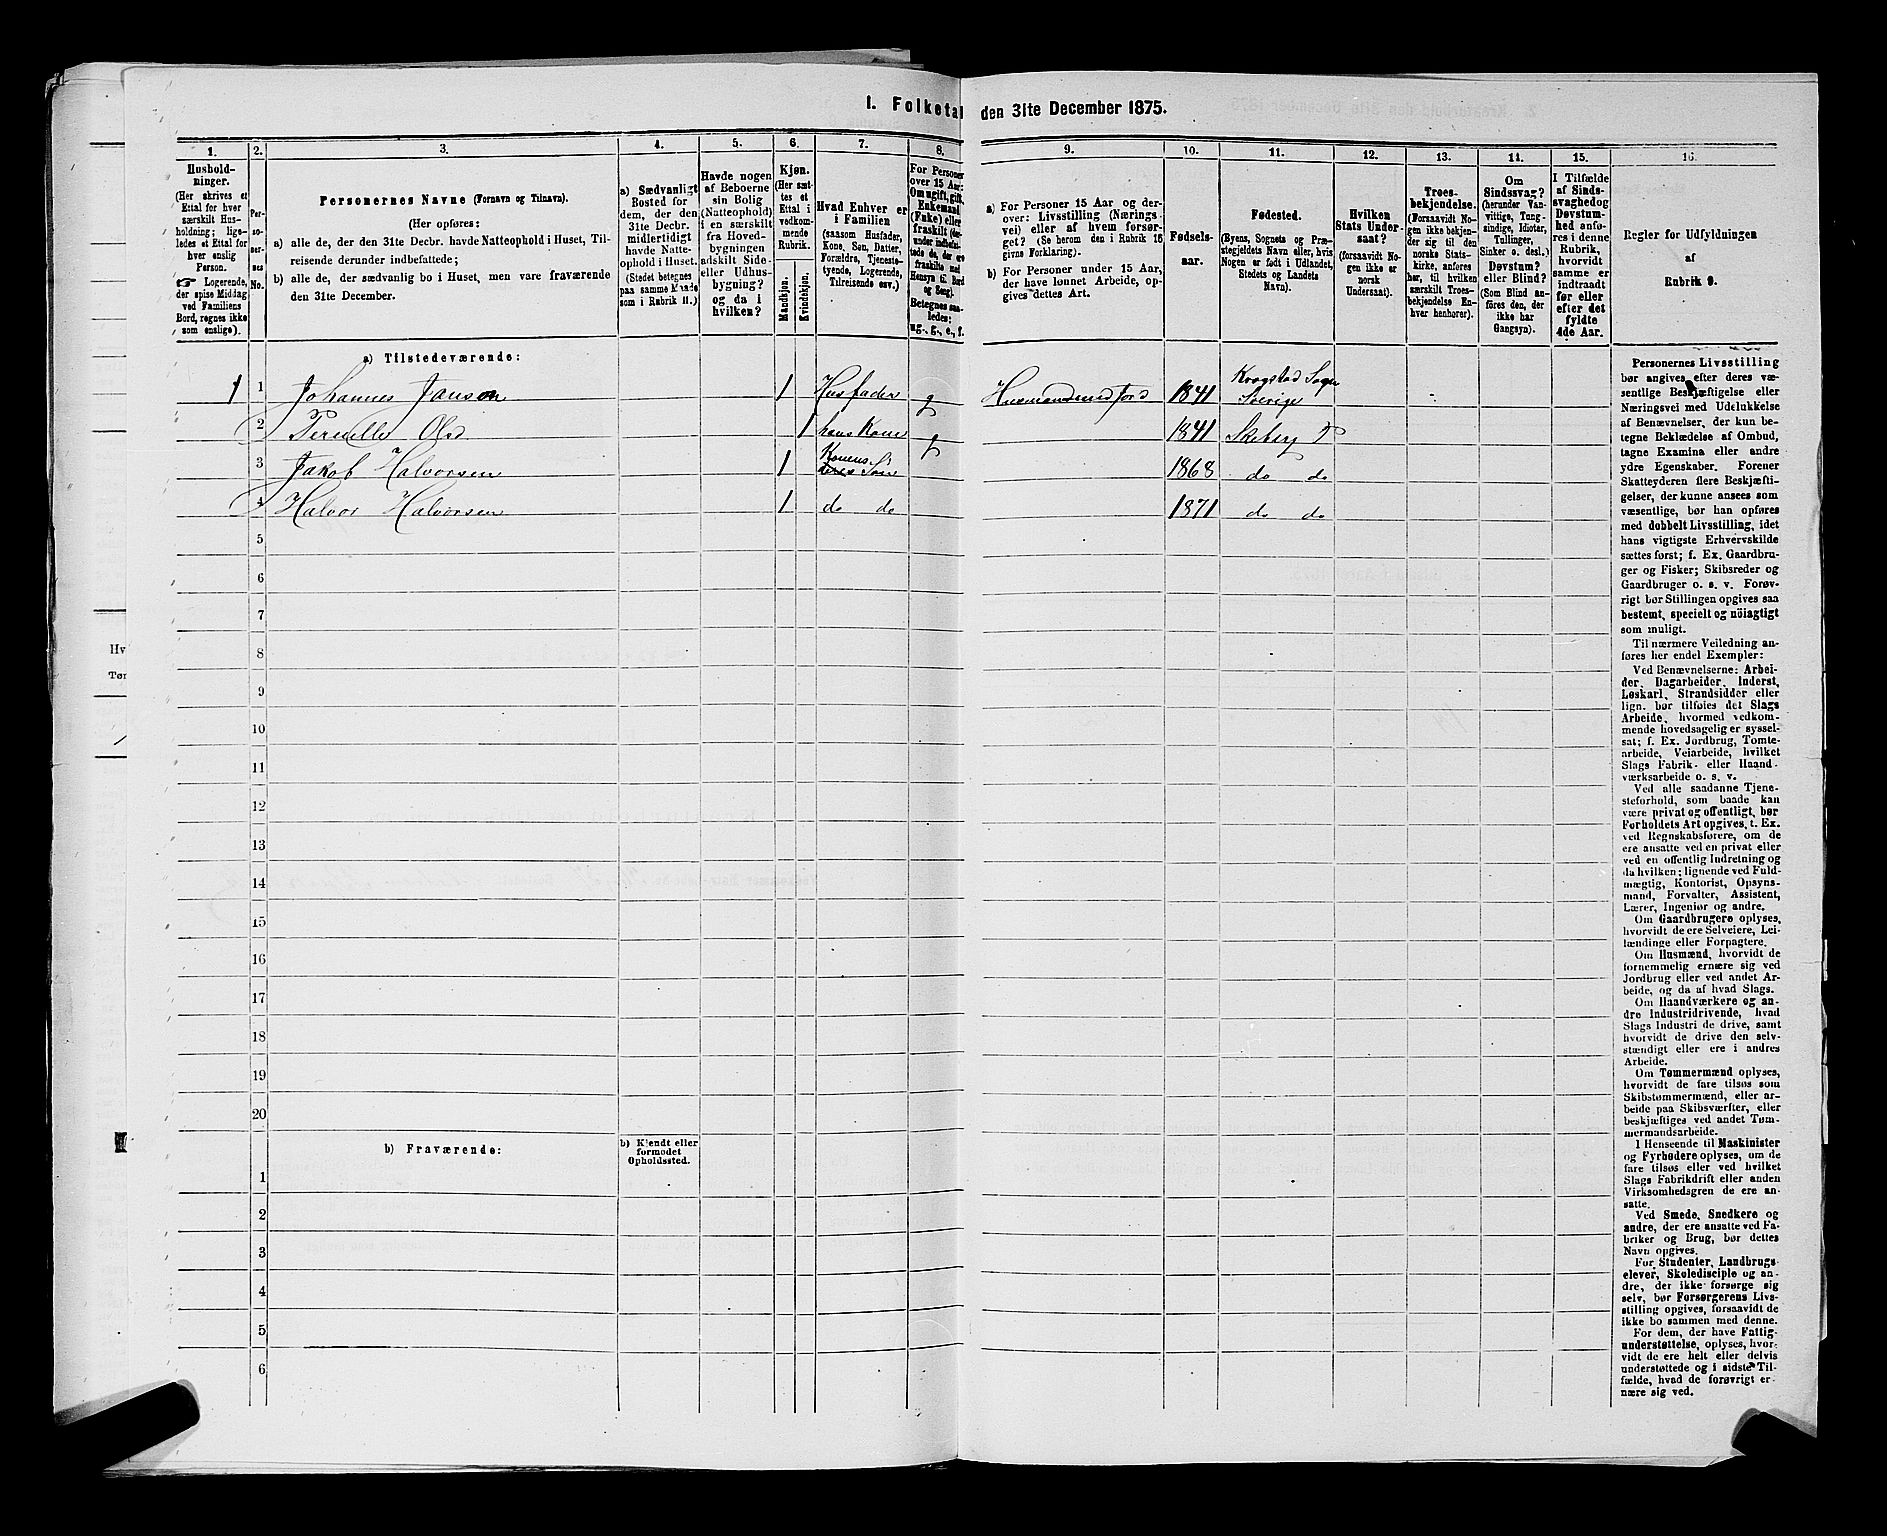 1. Folketal den 31te December 1875.
1.
2.
3.
4.
5.
6.
7.
8.
9.
10.
11.
12.
13.
14.
15.
16.
Hushold-
ninger.
(Her skrives et
Ettal for hver
særskilt Hus-
holdning; lige-
ledes et Ettal for
hver enslig
Person.
☛ Logerende,
der spise Middag
ved Familiens
Bord, regnes ikke
som enslige).
Per-
so-
ner-
nes
No.
Personernes Navne (Fornavn og Tilnavn).
(Her opføres:
a) alle de, der den 31te Decbr. havde Natteophold i Huset, Til-
reisende derunder indbefattede;
b) alle de, der sædvanlig bo i Huset, men vare fraværende
den 31te December.
a) Sædvanligt
Bosted for
dem, der den
31te Decbr.
midlertidigt
havde Natte-
ophold i Huset.
(Stedet betegnes
paa samme Maade
som i Rubrik 11.)
Havde nogen
af Beboerne
sin Bolig
(Natteophold)
i en særskilt
fra Hoved-
bygningen
adskilt Side-
eller Udhus-
bygning?
og da i
hvilken?
Kjøn.
(Her sæt-
tes et
Ettal i
vedkom-
mende
Rubrik.
Mandkjøn.
Kvindekjøn.
Hvad Enhver er
i Familien
(saasom Husfader,
Kone, Søn, Datter,
Forældre, Tjeneste-
tyende, Logerende,
Tilreisende osv.)
For Personer
over 15 Aar:
Om ugift, gift,
Enkemand
(Enke) eller
fraskilt (der-
under indbefat-
tede de, der ere
fraskilte med
Hensyn til Bord
og Seng).
Betegnes saa-
ledes:
ug., g., e., f.
a) For Personer 15 Aar og der-
over: Livsstilling (Nærings-
vei) eller af hvem forsør-
get? (Se herom den i Rubrik 16
givne Forklaring).
b) For Personer under 15 Aar,
der have lønnet Arbeide, op-
gives dettes Art.
Fødsels-
aar.
Fødested.
(Byens, Sognets og Præ-
stegjeldets Navn eller, hvis
Nogen er født i Udlandet,
Stedets og Landets
Navn).
Hvilken
Stats Under-
saat?
(forsaavidt No-
gen ikke er
norsk
Undersaat).
Troes-
bekjendelse.
(Forsaavidt No-
gen ikke bekjen-
der sig til den
norske Stats-
kirke, anføres
her, til hvilken
særskilt Troes-
bekjendelse En-
hver henhører).
Om
Sindssvag?
(herunder Van-
vittige, Tung-
sindige, Idioter,
Tullinger,
Sinker o. desl.).
Døvstum?
eller Blind?
(Som Blind an-
føres den, der
ikke har
Gangsyn).
I Tilfælde
af Sinds-
svaghed og
Døvstum-
hed anfø-
res i denne
Rubrik,
hvorvidt
samme er
indtraadt
før eller
efter det
fyldte
4de Aar.
Regler for Udfyldningen
af
Rubrik 9.
a) Tilstedeværende:
1 1 Johannes Janson 1 Husfader g Husmand med Jord 1841 Krogstad Sogn
Sverige
2 Pernille Olsd 1 hans Kone g 1841 Skeberg P
3 Jakob Halvorsen 1 Konens Søn 1868 do do
4 Halvor Halvorsen 1 do do 1871 do do
5
6
7
8
9
10
11
12
13
14
15
16
17
18
19
20
b) Fraværende:
b) Kjendt eller
formodet
Opholdssted.
1
2
3
4
5
6
Personernes Livsstilling
bør angives efter deres væ-
sentlige Beskjæftigelse eller
Næringsvei med Udelukkelse
af Benævnelser, der kun be-
tegne Beklædelse af Ombud,
tagne Examina eller andre
ydre Egenskaber. Forener
Skatteyderen flere Beskjæfti-
gelser, der kunne ansees som
væsentlige, bør han opføres
med dobbelt Livsstilling, idet
hans vigtigste Erhvervskilde
sættes først; f. Ex. Gaardbru-
ger og Fisker; Skibsreder og
Gaardbruger o. s. v. Forøv-
rigt bør Stillingen opgives saa
bestemt, specielt og nöiagtigt
som muligt.
Til nærmere Veiledning an-
føres her endel Exempler:
Ved Benævnelserne: Arbei-
der, Dagarbeider, Inderst,
Løskarl, Strandsidder eller
lign. bør tilføies det Slags
Arbeide, hvormed vedkom-
mende hovedsagelig er syssel-
sat; f. Ex. Jordbrug, Tomte-
arbeide, Veiarbeide, hvilket
Slags Fabrik- eller Haand-
værksarbeide o. s. v.
Ved alle saadanne Tjene-
steforhold, som baade kan
være privat og offentligt, bør
Forholdets Art opgives, t. Ex.
ved Regnskabsførere, om de
ere ansatte ved en privat eller
ved en offentlig Indretning og
da hvilken; lignende ved Fuld-
mægtig, Kontorist, Opsyns-
mand, Forvalter, Assistent,
Lærer, Ingeniør og andre.
Om Gaardbrugere oplyses,
hvorvidt de ere Selveiere, Lei-
lændinge eller Forpagtere.
Om Husmænd, hvorvidt de
fornemmelig ernære sig ved
Jordbrug eller ved andet Ar-
beide, og da af hvad Slags.
Om Haandværkere og an-
dre Industridrivende, hvad
Slags Industri de drive, samt
hvorvidt de drive den selv-
stændigt eller ere i andres
Arbeide.
Om Tømmermænd oplyses,
hvorvidt de fare tilsøs som
Skibstømmermænd, eller ar-
beide paa Skibsværfter, eller
beskjæftiges ved andet Tøm-
mermandsarbeide.
I Henseende til Maskinister
og Fyrbødere oplyses, om de
fare tilsøs eller ved hvilket
Slags Fabrikdrift eller anden
Virksomhedsgren de ere an-
satte.
Ved Smede, Snedkere og
andre, der ere ansatte ved Fa-
briker og Brug, bør dettes
Navn opgives.
For Studenter, Landbrugs-
elever, Skoledisciple og an-
dre, der ikke forsørge sig
selv, bør Forsørgerens Livs-
stilling opgives, forsaavidt de
ikke bo sammen med denne.
For dem, der have Fattig-
understøttelse, oplyses, hvor-
vidt de ere helt eller delvis
understøttede og i sidste Til-
fælde, hvad de forøvrigt er-
nære sig ved.